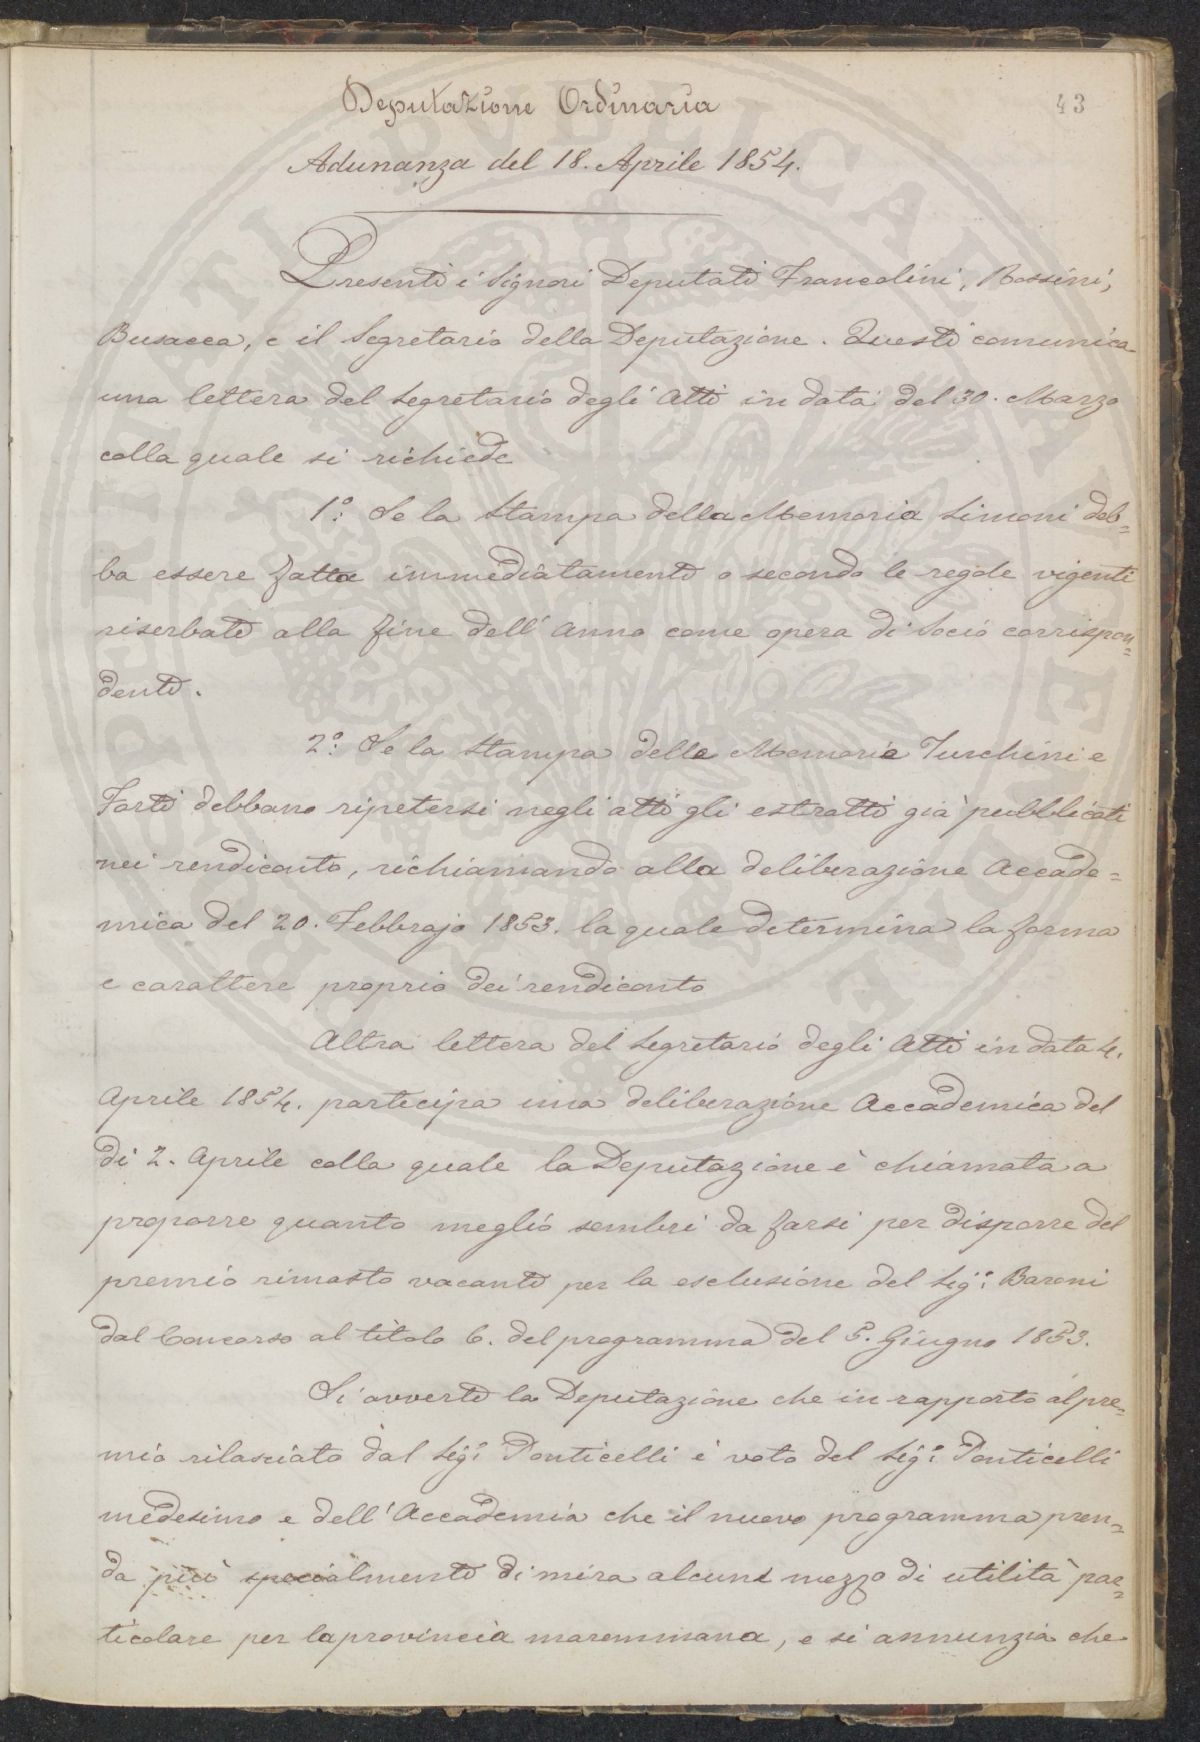 43
Deputazione Ordinaria
Adunanza del 18. Aprile 1854.
Presenti i Signori Deputati Francolini, Rossini,
Busacca, e il Segretario della Deputazione. Questi comunica
una lettera del Segretario degli Atti in data del 30. Marzo
colla quale si richiede
1.° Se la Stampa della Memoria Simoni deb=
ba essere fatta immediatamente o secondo le regole vigenti
riserbata alla fine dell'anno come opera di Socio corrispon=
dente.
2.° Se la Stampa delle Memorie Turchini e
Forti debbano ripetersi negli atti gli estratti già pubblicati
nei rendiconto, richiamando alla deliberazione Accade=
mica del 20. Febbrajo 1853. la quale determina la forma
e carattere proprio dei rendiconto
Altra lettera del Segretario degli Atti in data 4.
Aprile 1854. partecipa una deliberazione Accademica del
dì 2. Aprile colla quale la Deputazione è chiamata a
proporre quanto meglio sembri da farsi per disporre del
premio rimasto vacante per la esclusione del Sig.° Baroni
dal Concorso al titolo 6. del programma del 5. Giugno 1853.
Si avverte la Deputazione che in rapporto al pre=
mio rilasciato dal Sig.° Ponticelli è voto del Sig.° Ponticelli
medesimo e dell'Accademia che il nuovo programma pren=
da più specialmente di mira alcuni mezzo di utilità par=
ticolare per la provincia maremmana, e si annunzia che
PROSPERITATI PUBLICAE AUGENDAE